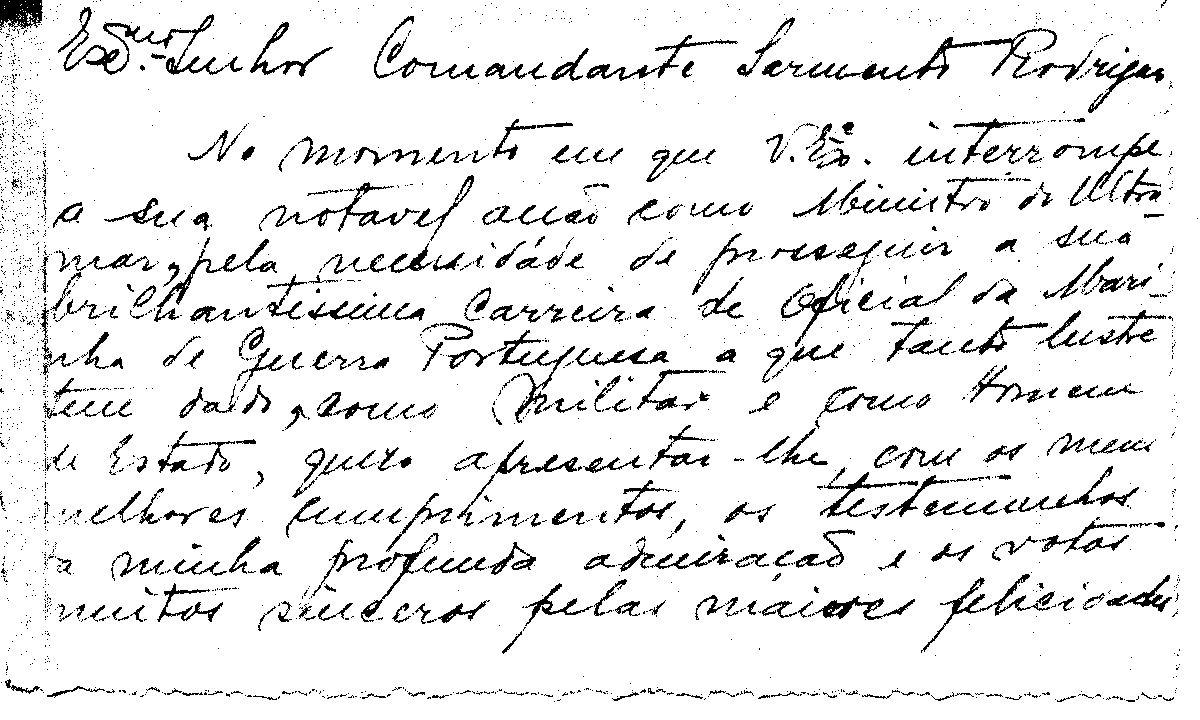 Exmo. Senhor Comandante Sarmento Rodrigues
No momento em que V. Exa. interrompe
a sua notavel acção como Ministro do Ultra-
mar, pela necessidade de prosseguir a sua
brilhantissima carreira de Oficial da Mari-
nha de Guerra Portuguesa a que tanto lustre
tem dado, como Militar e como Homem
de Estado, quero apresentar-lhe, com os meus
melhores cumprimentos, os testemunhos
da minha profunda admiração e os votos
muitos sinceros pelas maiores felicidades